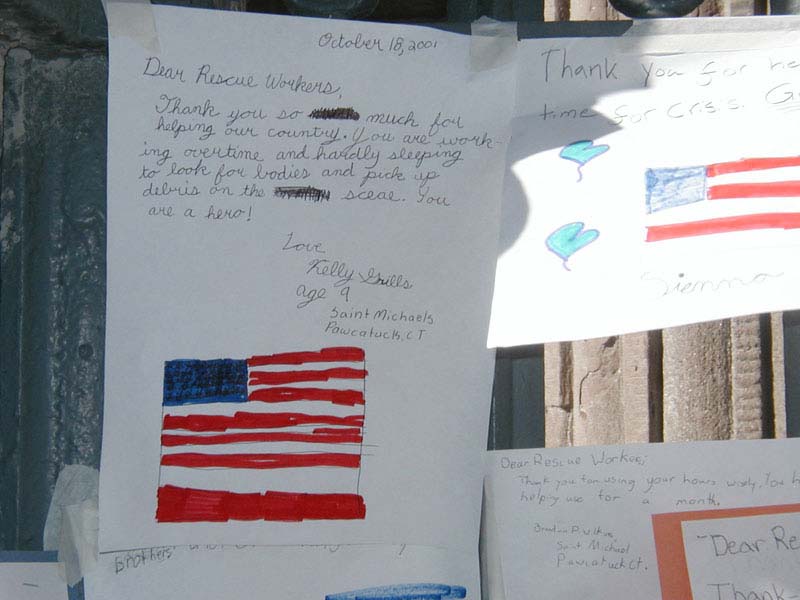 October 18, 2001
Dear Rescue Workers,
Thank you so much for
helping our country. You are work-
ing overtime and hardly sleeping
to look for bodies and pick up
debris on the sceae. You
are a hero!
Love
Kelly Grills
age 9
Saint Michaels
Pawcatuck, CT
Thank you for he
time for crisis. G
Sienna
Dear Rescue Worker;
Thank you for using your hours wisely. You h
helping use for a month.
Saint Michael
Pawcatuck Ct.
"Dear Re
Thank-
Brothers